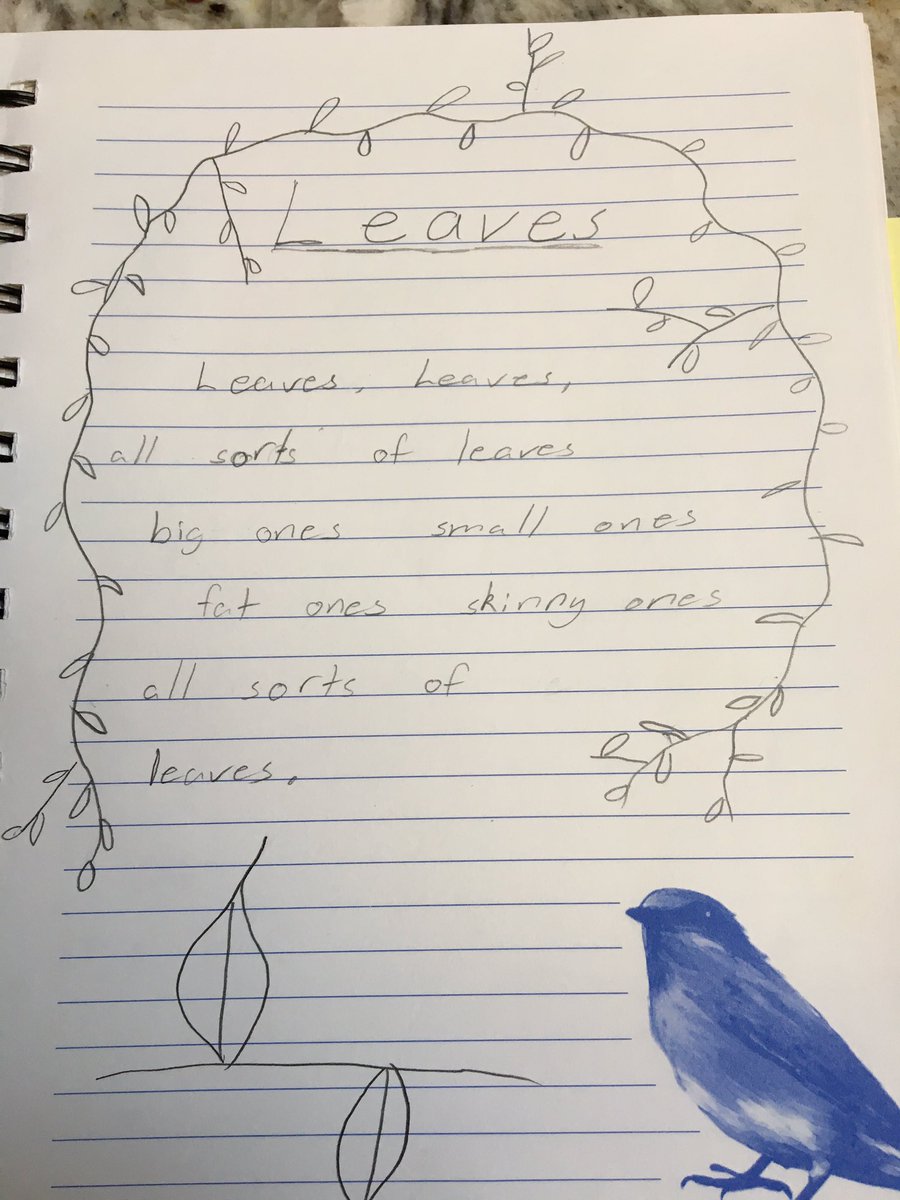 Leaves
Leaves, Leaves,
all sorts of leaves
big ones small ones
fat ones skinny ones
all sorts of
leaves.